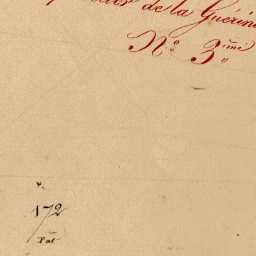 de la Guérin
N.º 3.me
172
Pat